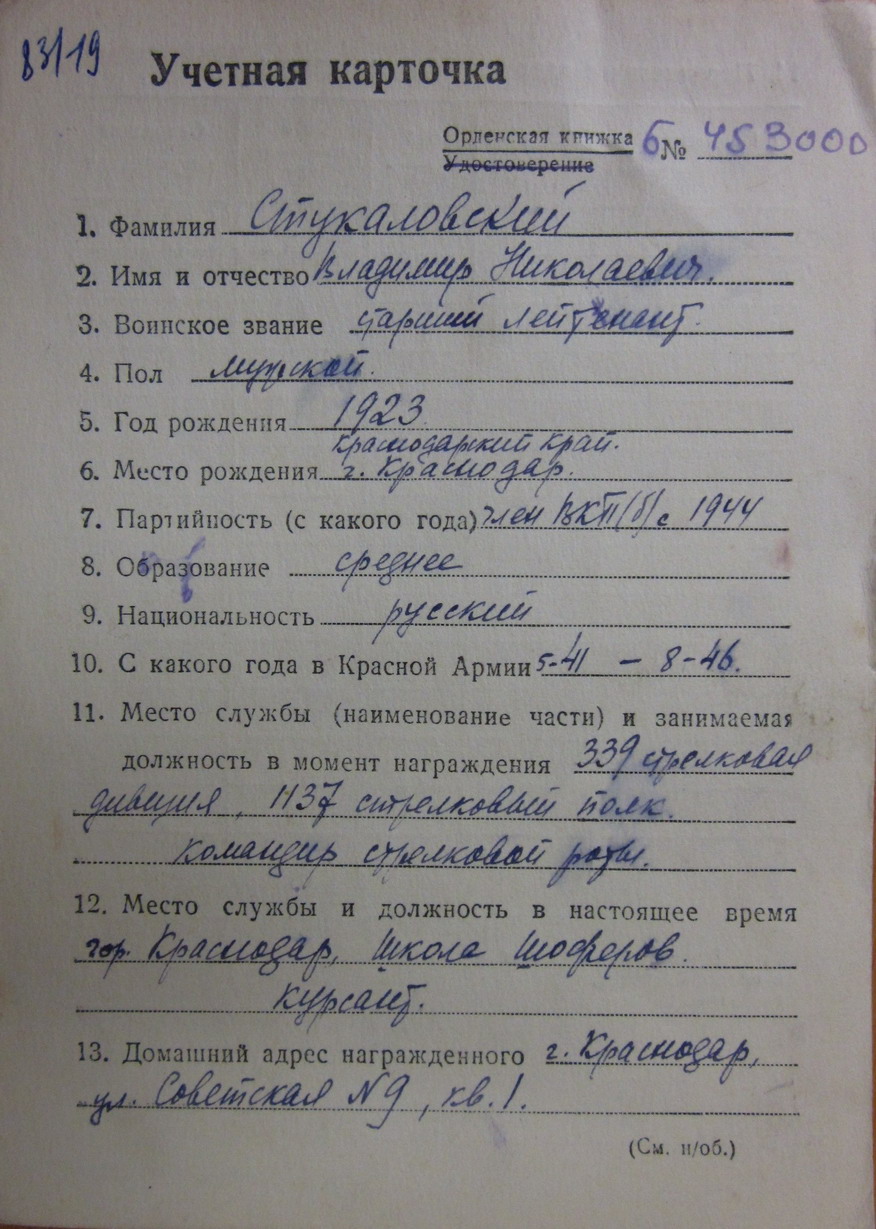 83/19
Учетная карточка
Орденская книжка Б № 453000
Удостоверение
1. Фамилия Стукаловский
2. Имя и отчество Владимир Николаевич.
3. Воинское звание старший лейтенант.
4. Пол мужской.
5. Год рождения 1923
Краснодарский край.
6. Место рождения г. Краснодар.
7. Партийность (с какого года) член ВКП(б) с 1944
8. Образование среднее
9. Национальность русский
10. С какого года в Красной Армии 5-41 – 8-46.
11. Место службы (наименование части) и занимаемая
должность в момент награждения 339 стрелковая
дивизия, 1137 стрелковый полк.
командир стрелковой роты.
12. Место службы и должность в настоящее время
гор. Краснодар, школа шоферов.
курсант.
13. Домашний адрес награжденного г. Краснодар,
ул. Советская N 9, кв. 1.
(См. н/об.)